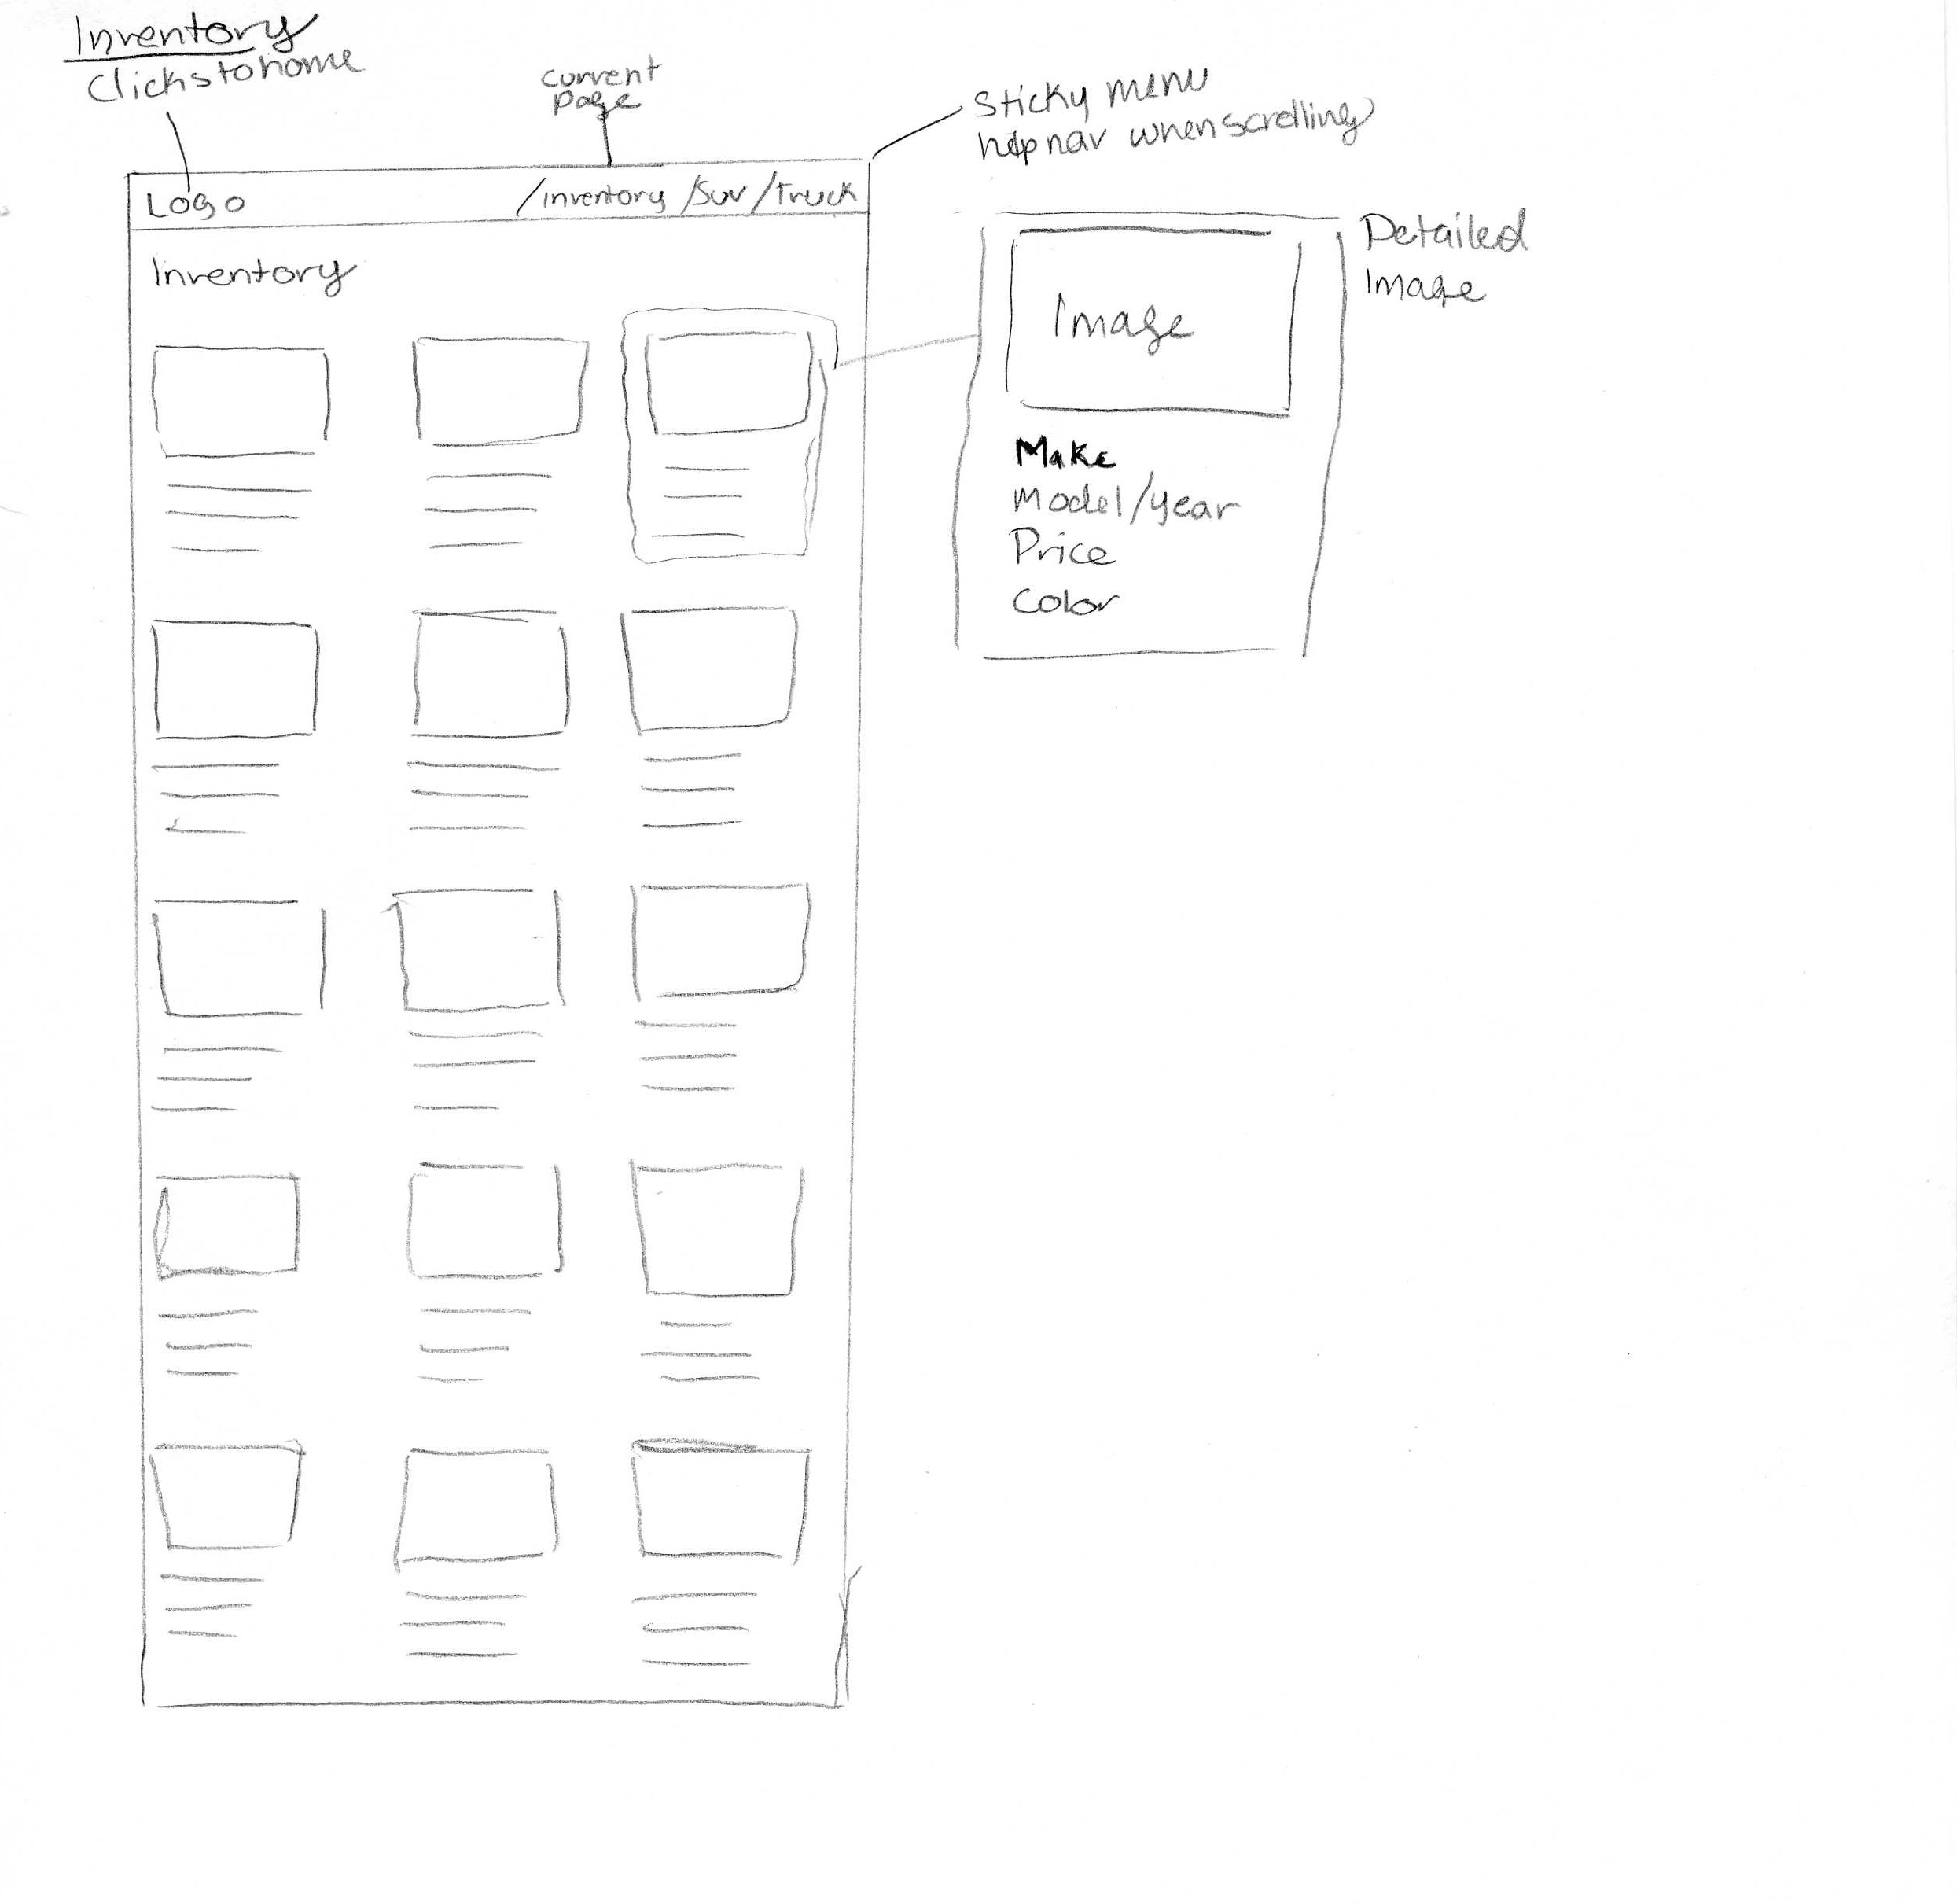 Inventory
Clicks to home
current
page
Sticky menu
help nav when scrolling
Logo
/Inventory /Suv /Truck
Inventory
Detailed
Image
Image
Make
Model/year
Price
Color